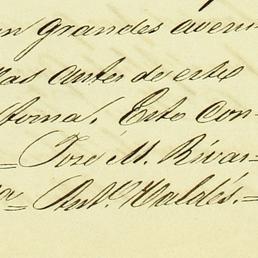 n grandes aveni
las antes de estos
forma. Esto Con-
= José M. Rivas =
Ant.º Valdés. =